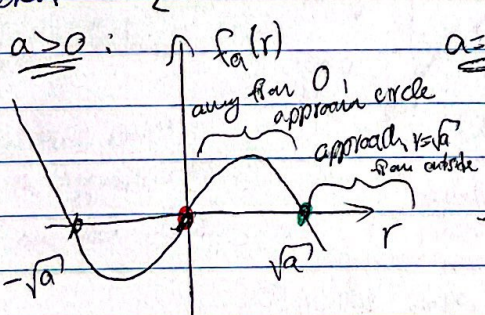 a>0 :
f_a(r)
a=
away from 0,
approach circle
approach r=√a
from outside
-√a
√a
r